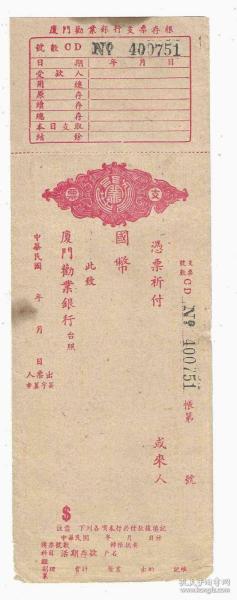 廈門勸業銀行支票存根
號數CD No 400751
日期 年 月 日
受款人
用途
原存
續存
總存
本日支取
結餘
支票
號數CD No 400751
憑票祈付
國幣
此致
廈門勸業銀行台照
中華民國 年 月 日
帳第 號
或來人
出票人
簽字蓋章
$
注意 下列各項本行於付款後填記
中華民國 年 月 日付
傳票號數
科目 活期存款 戶名
經副理 會計 營業 出納 記帳